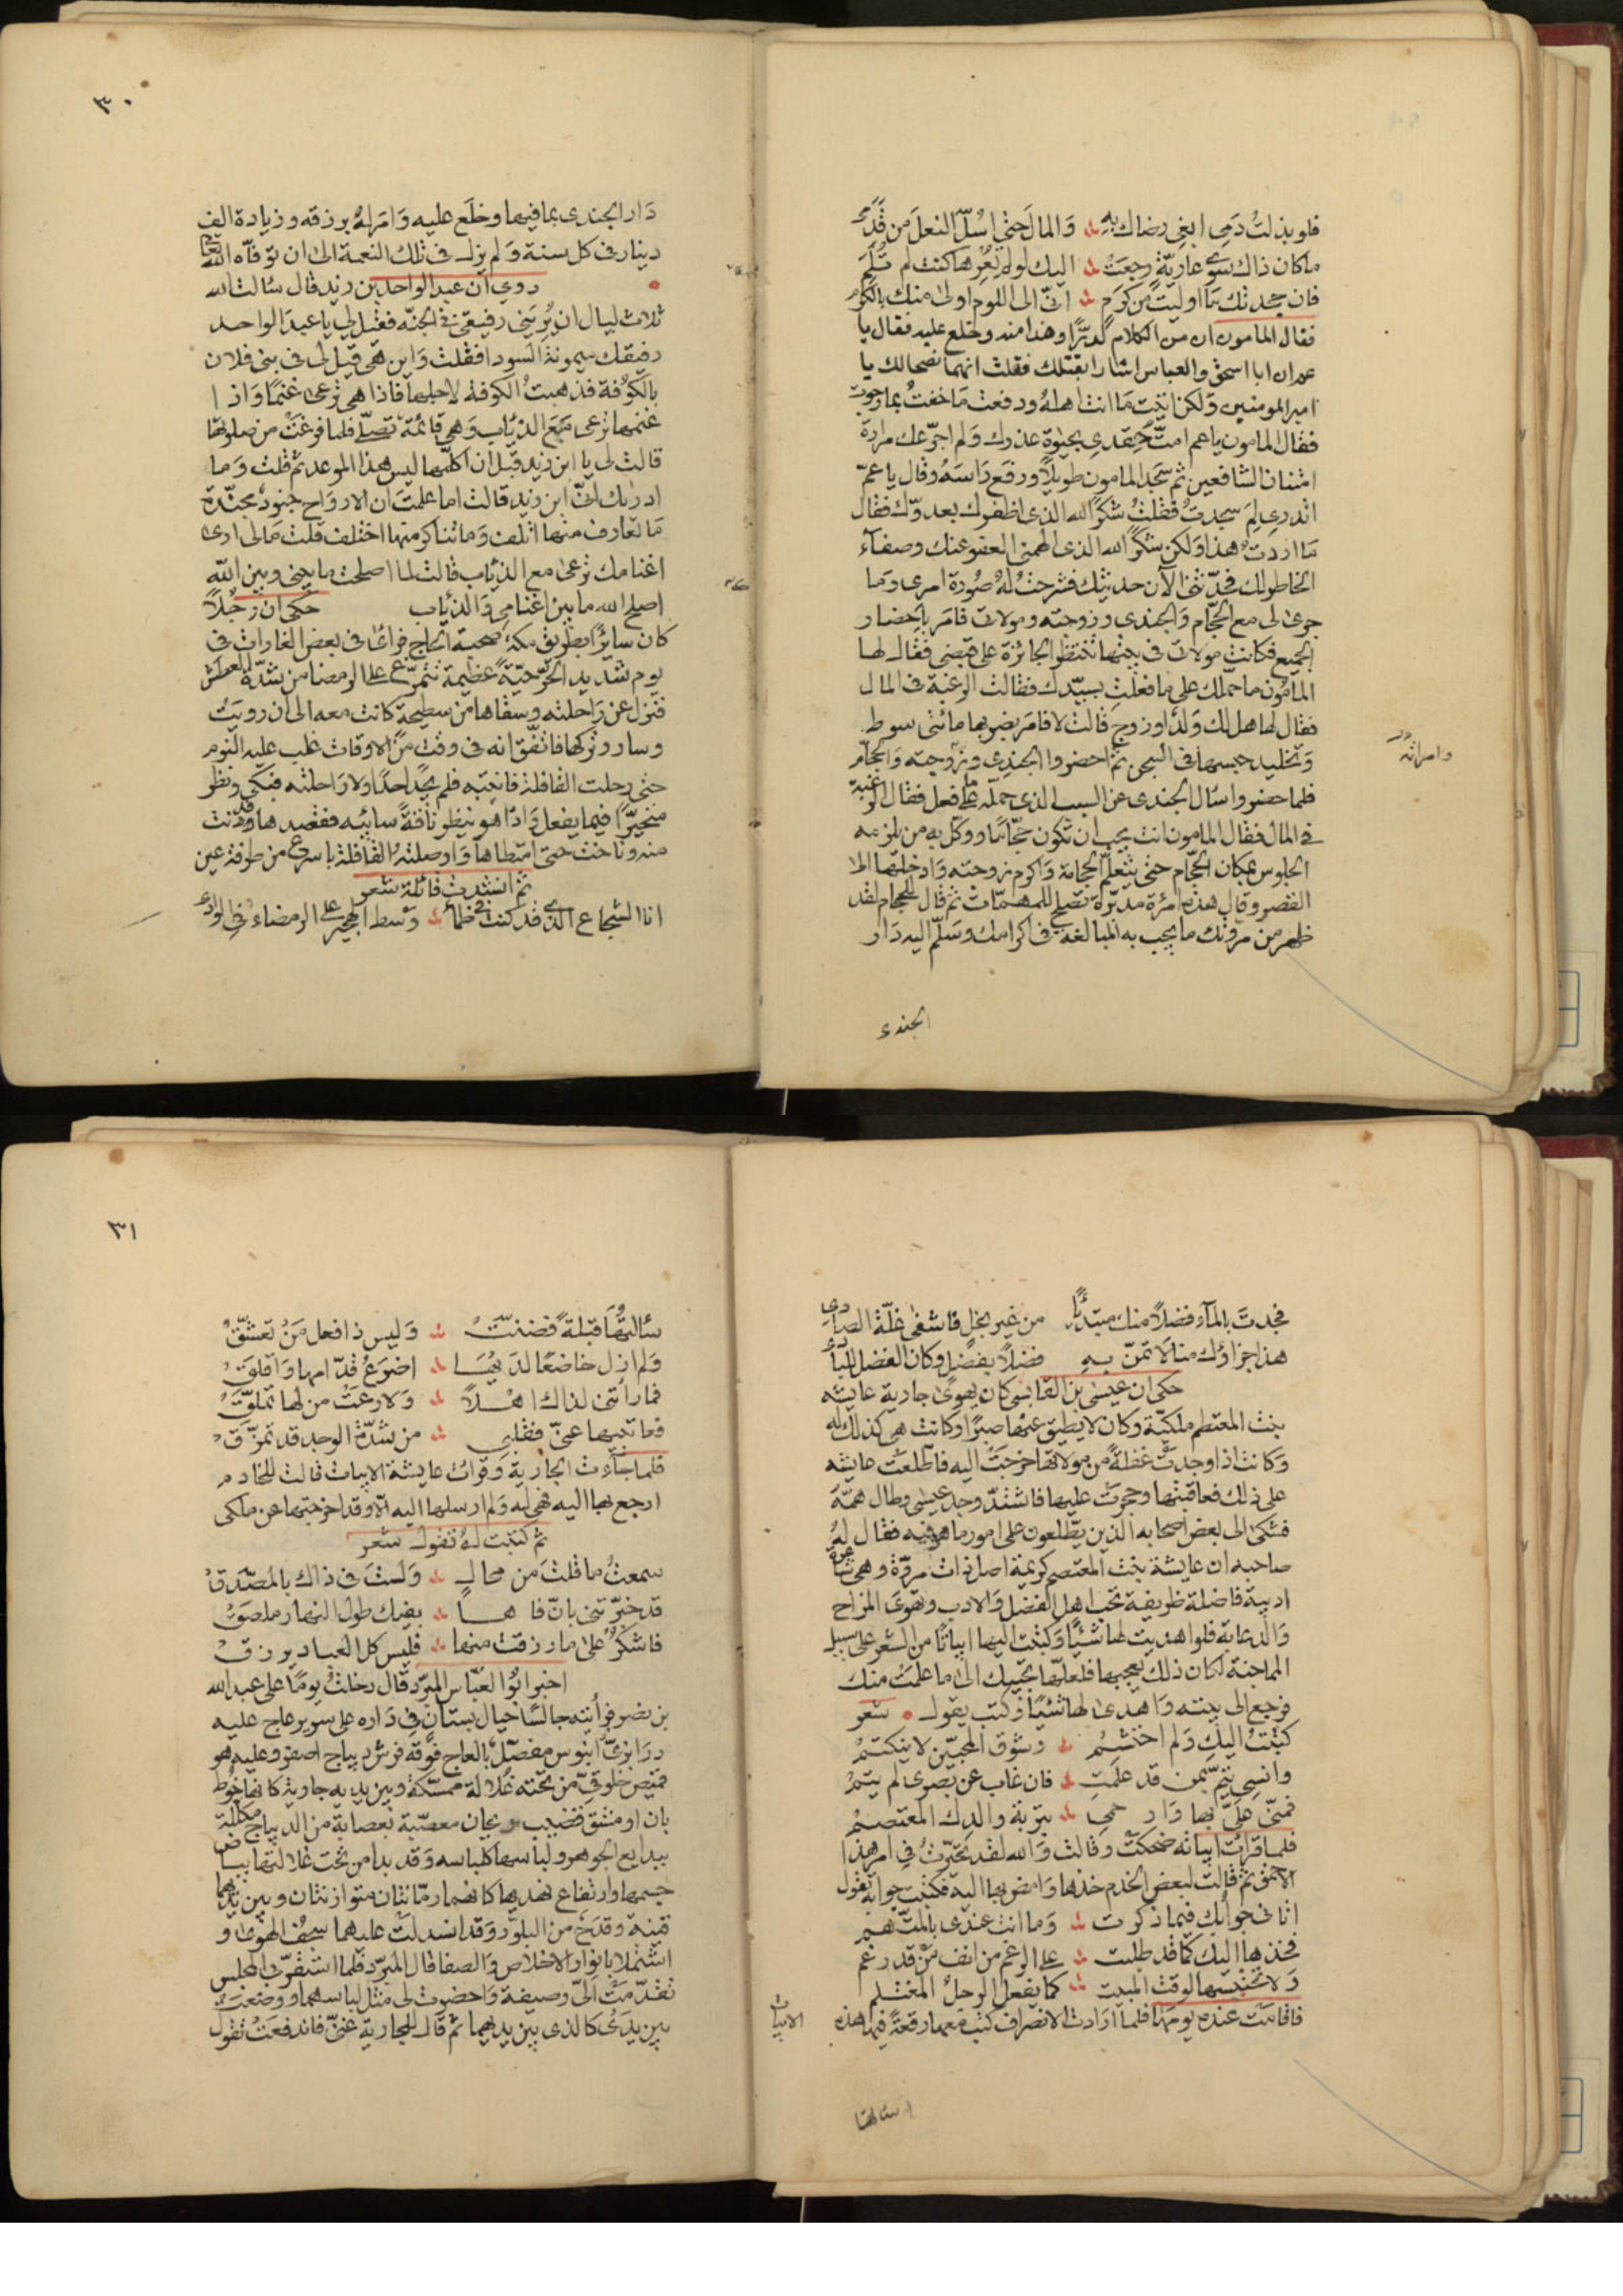 فلو بذلتُ دَمِى ابغى رضاك بهِ وَالمالَ حتى اسُلّ النعلَ من قَدَمى
ماكان ذاك سوى عاريّةٍ رجعَتْ اليك لو لم تُعِرها كنت لم تُلَمَ
فان جحدتك مَا اوليتَ من كرَمٍ انى الى اللوم اولى منك بالكرم
فقال المامون ان من الكلام لدرًّا وهذا منه وخلع عليه فقال يا
عم ان ابا اسحق والعباس اشارا بقتلك فقلت انهما نصحا لك يا
امير المومنين ولكن اتيت مَا انت اهلهُ ودفعت مَا خفتُ بما رجوت
فقال المامون ياعم امتَّ حِقدى بحيٰوة عذرك وَلم اجرّعك مرارة
امتنان الشافعين ثم سجَد المامون طويلاً ورفع رَاسَهُ وقال ياعمّ
اتدرى لمَ سجدتُ فقلتُ شكرًا لله الذى اظفرك بعدوّك فقال
مَا اردتُ هذا وَلكن شكرًا لله الذى الهمنى العفو عنك وصفآء
الخاطر لك فحدّثنى الآن حديثك فشرحتُ لهُ صُورة امرى وَما
جرى لى مع الحجّام وَالجندى وزوجته ومولاتى فامَر باحضار
الجميع فكانت مولاتى فى بيتها تنتظر الجائزة على قبضى فقال لها
المامُون ما حمَلك على ما فعلتِ بسيّدك فقالت الرغبة فى المال
فقال لها هل لك وَلدٌ او زوج قالت لا فامَر بضربها مائتى سوط
وَتخليد حبسها فى السجن ثمّ احضروا الجندى وزوجته وَالحجّام
وامراته
فلما حضروا سُال الجندى عن السبب الذى حمَله على ما فعل فقال الرغبة
فى المال فقال المامون انت يجب ان تكون حجّامًا ووكّل به من يلزمه
الجلوس بمكان الحجّام حتى يتعلّم الحجامة وَاكرم زوجته وَادخلتها الى
القصر وقال هذه امرُة مدبّرة تصلح للمهمّات ثم قال للحجام لقد
ظهر من مروّتك ما يجب به المبالغه فى اكرامك وسَلّم اليه دَار
الجندى
٣٠
دَار الجندى بما فيها وخلَع عليه وَامَر لهُ برزقه وزيادة الف
دينار فى كل سنة وَلم يزل فى تلك النعمة الى ان توفّاه الله تعالى
روى ان عبد الواحد بن زيد قال سُالت الله
ثلاث ليال ان يُريَنى رفيقى فى الجنّه فقيل لى يا عبدَ الواحد
رفيقك ميمونة السودا فقلت وَاين هى قيل لى فى بنى فلان
بالكوُفة فذهبتُ الكوفة لاطلبها فاذا هى ترعى غنمًا وَاذا
غنمها ترعى مَعَ الذئاب وَهى قائمة تصلّى فلما فرغتْ من صلوتها
قالت لى يا ابن زيد قبل ان اكلّمها ليس هذا الموعد ثم قلت وَما
ادرٰيك انى ابن زيد قالت اما علمتَ ان الارواح جنود مجنّدة
مَا تعارف منها ائتلف وَما تناكر منها اختلف قلت مَالى ارى
اغنامك ترعى مع الذئاب قالت لما اصلحت ما بينى وبين الله
اصلح الله ما بين اغنامى وَالذئاب حكى ان رجُلاً
كان سائرًا بطريق مكة صحبة الحاج فراى فى بعض الغارات فى
يوم شديد الحرّ حيّةً عظيمة تتمرّغ على الرمضا من شدّة العطش
فنزل عن رَاحلته وسقاها من سطيحة كانت معه الى ان رويَت
وسار وتركها فاتفق انه فى وقت من الاوقات غلب عليه النوم
حتى رحلت القافلة فانتبه فلم يجد احدًا ولا رَاحلته فبكى ونظر
متحيّرًا فيما يفعل وَاذا هو ينظر ناقةً سائبه فقصدها وقد دنت
منه وناخت حتى امتطاها وَاوصلته القافلة باسرع من طرفة عين
ثمّ انشدت قائلة شعر
انا الشجاع الذى قد كنت فى ظمأ وَسط الهجير على الرمضاء فى الوادى
فجدتَ بالمآء فضلاً منك مبتدئًا من غير بخل فاشفى غلّة الصادى
هذا جزاؤك منا لا تمنّ به فضلاً بفضلٍ وكان الفضل للبادى
حكى ان عيسى بن القابسى كان يهوىٰ جارية عايشه
بنت المعتصم ملكيّة وكان لا يطيق عنها صبرًا وَكانت هى كذلك له
وَكانت اذا وجدتْ غفلةً من مولاتها خرجَتْ اليه فاطلعت عايشه
على ذلك فعاقبتها وحجرتَ عليها فاشتدّ وجد عيسى وطال همّهُ
فشكى الى بعض اصحابه الذين يطّلعون على امور ما هو فيه فقال لهُ
صاحبه ان عايشة بنت المعتصم كريمة اصل ذات مروّة وهى شاعرة
اديبة فاضلة ظريفة تحب اهل الفضل وَالادب وَتهوىَ المزاح
وَالدعابة فلو اهديت لها شيئًا وكتبتَ اليها ابياتًا من الشعر على سبيل
المماجنة لكان ذلك يعجبها فلعلّها تجيبك الى ما علمت منك
فرجع الى بيته وَاهدىٰ لها شيئًا وَكتب يقول شعر
كتبْتُ اليكِ وَلم احتشمْ وشوق المحبّين لا ينكتمْ
وانسى يتمّ بمن قد علمتِ فان غاب عن بصرى لم يتمْ
فمنّى علىّ بها وَارحمى بتربة والدك المعتصمْ
فلما قرأت ابياته ضحكتْ وقالت وَالله لقد تحيّرتُ فى امر هذا
الاحمق ثم قالت لبعض الخدم خذها وَامض بها اليه فكتبت جوابه تقول
انا فى جوابك فيما ذكرت وَما انت عندى بالمتّهم
فخذها اليك كما قد طلبت على الرغم من انف مَنْ قد رغم
وَلا تحبسنها لوقت المبيت كما يفعل الرجلُ المغتلم
فاقامَت عنده يومَها فلما ارَادت الانصراف كتب معها رقعةً فيها هذه
الابيات
سالتها
٣١
سألتهُا قبلةً فضننتُ وَليس ذا فعل مَنْ تعشّقْ
وَلم ازل خاضعًا لدَيْهَا اضرَعُ قدّامها وَاقلقْ
فما رأتنى لذاك اهْلاً وَلا رعَتْ من لها تملّقْ
فعاتبيها عنّى فقلبى من شدّة الوجد قد تمزّقْ
فلما جآءت الجارية وَقرات عايشة الابيات قالت للخادم
ارجع بها اليه فهى له وَلم ارسلها اليه الّا وقد اخرجتها عن ملكى
ثم كتبَت لهُ تقول شعر
سمعتُ ما قلتَ من محالٍ وَلستَ فى ذاك بالمصّدقْ
قد خبّرتنى بانّ فاها بفيك طول النهار ملصَقْ
فاشكرُ على ما رزقت منها فليس كل العباد يرزقْ
اخبر ابوُا العبّاس المبرّد قال دخلتُ يومًا على عبد الله
بن نصر فرأيته جالسًا حيال بستان فى دَاره على سرير عاج عليه
درَابزىّ ابنوس مفصّل بالعاج فوقَه فرش ديباج اصفر وعليه هو
قميص خلوقىّ من تحته غُلالة ممسّكة وبين يديه جارية كانها خوط
بان او مشق قضيب ريحان معصّبة بعصابة من الديباج مكلّلة
ببدايع الجوهر ولباسها كلباسه وَقد بدا من تحت غلالتها بياض
جسمها وارتفاع نهديها كانهما رمّانتان متوازنتان وبين يديهما
قنينة وقدَحٌ من البلّور وَقد انسدلَتْ عليهما سجُف الهوَىٰ و
اشتملا بانوار الاخلاص وَالصفا قال المبرّد فلما استقرّ بى المجلس
تقدّمتْ الىّ وصيفة وَاحضرت لى مثل لباسهما ووضعَتْ
بين يدىّ كالذى بين يديهما ثم قال للجارية غنّى فاندفعَتْ تقول